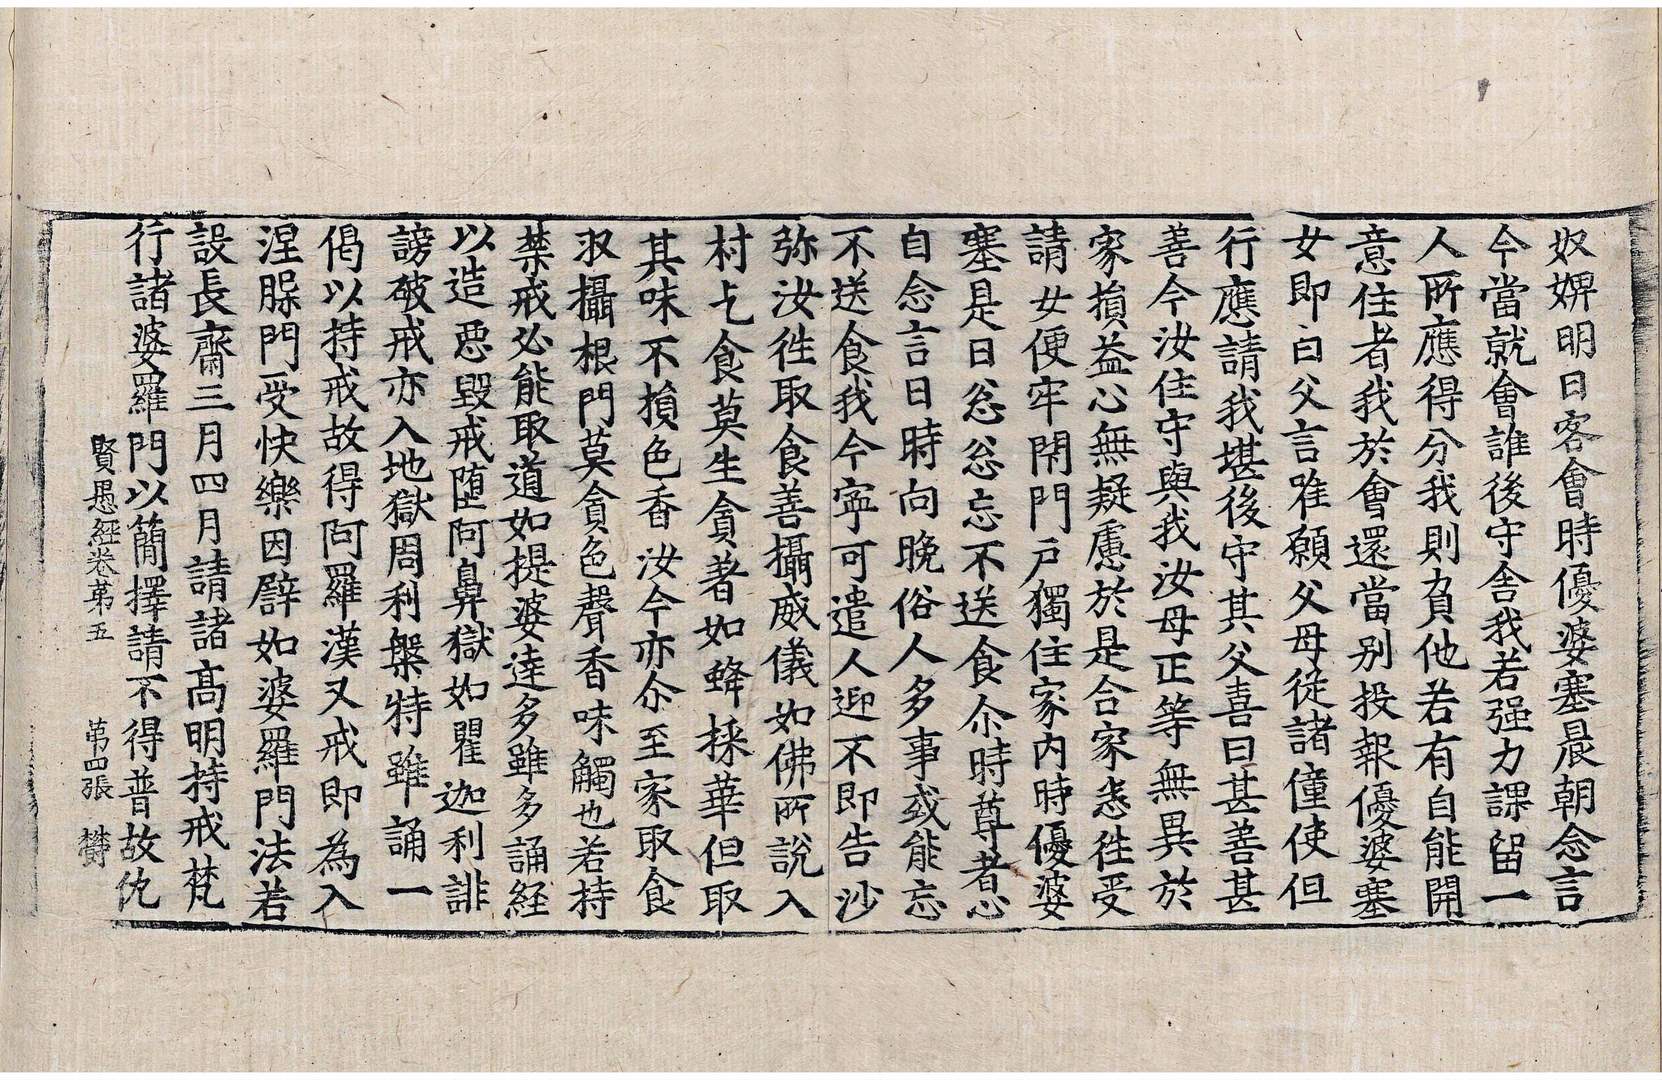 奴婢明日客會時優婆塞晨朝念言
今當就會誰後守舍我若强力課留一
人所應得分我則負他若有自能開
意住者我於會還當別投報優婆塞
女即白父言唯願父母從諸僮使但
行應請我堪後守其父喜曰甚善甚
善今汝住守與我汝母正等無異於
家損益心無疑慮於是合家悉往受
請女便牢閇門戶獨住家內時優婆
塞是日忩忩忘不送食尒時尊者心
自念言日時向晚俗人多事或能忘
不送食我今寧可遣人迎不即告沙
弥汝往取食善攝威儀如佛所說入
村乞食莫生貪著如蜂採華但取
其味不損色香汝今亦尒至家取食
収攝根門莫貪色聲香味觸也若持
禁戒必能取道如提婆達多雖多誦経
以造惡毀戒墮阿鼻獄如瞿迦利誹
謗破戒亦入地獄周利槃特雖誦一
偈以持戒故得阿羅漢又戒即為入
涅槃門受快樂因譬如婆羅門法若
設長齋三月四月請諸高明持戒梵
行諸婆羅門以簡擇請不得普故仇
賢愚經卷第五　第四張　欝